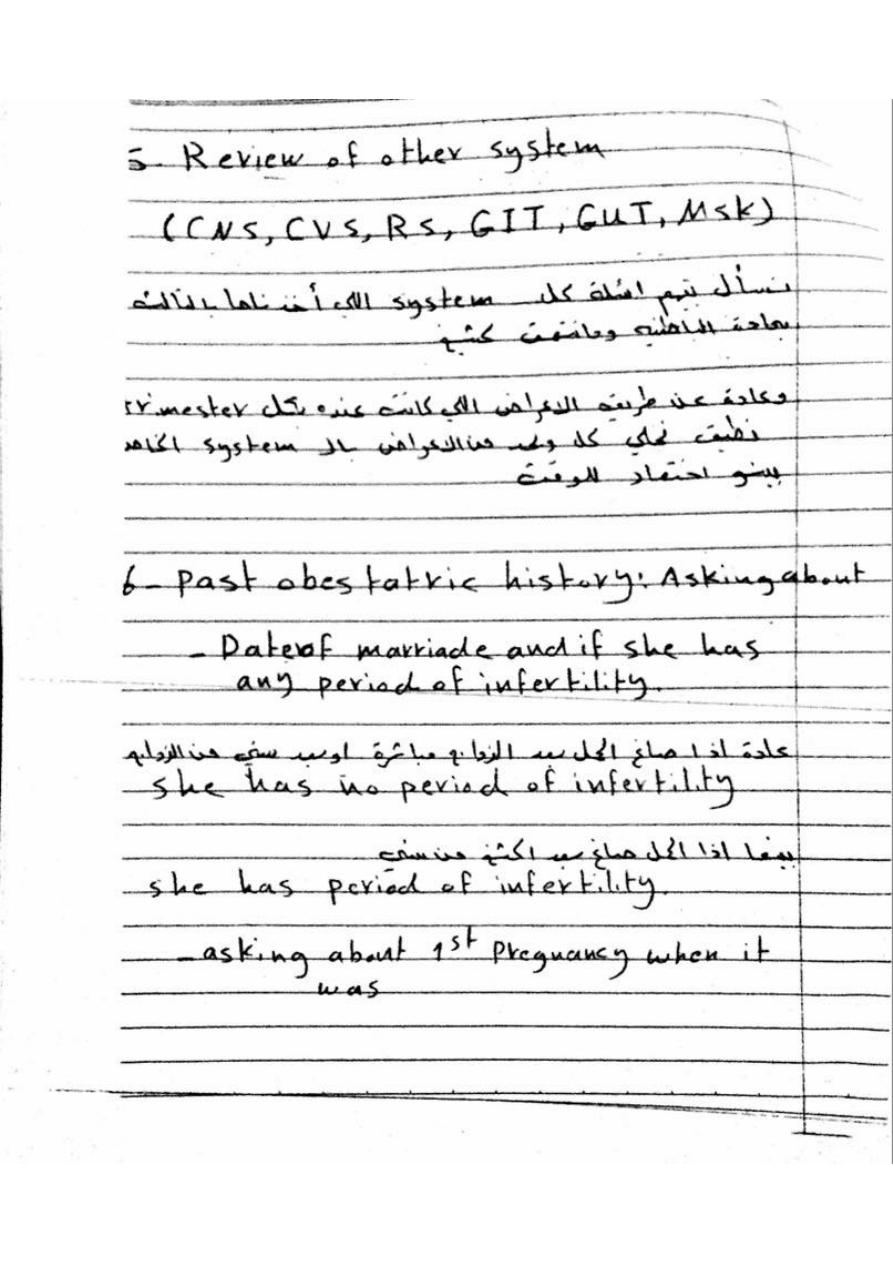 5- Review of other system
(CNS, CVS, RS, GIT, GUT, MSK)
نسأل نفس اسئلة كل system اللي أخذناها بالثالث
بمادة الباطنية
وعادة عن طريق الاعراض اللي كانت عنده بكل trimester
كل وحد من الاعراض بالـ system الخاص
اختصار للوقت
6- Past obestatric history: Asking about
- Date of marriade and if she has
any period of infertility.
عادة اذا صار الحمل بعد الزواج مباشرة او بعد سنة من الزواج
she has no period of infertility
بينما اذا الحمل صار بعد اكثر من سنة
she has period of infertility.
- asking about 1st Pregnancy when it
was